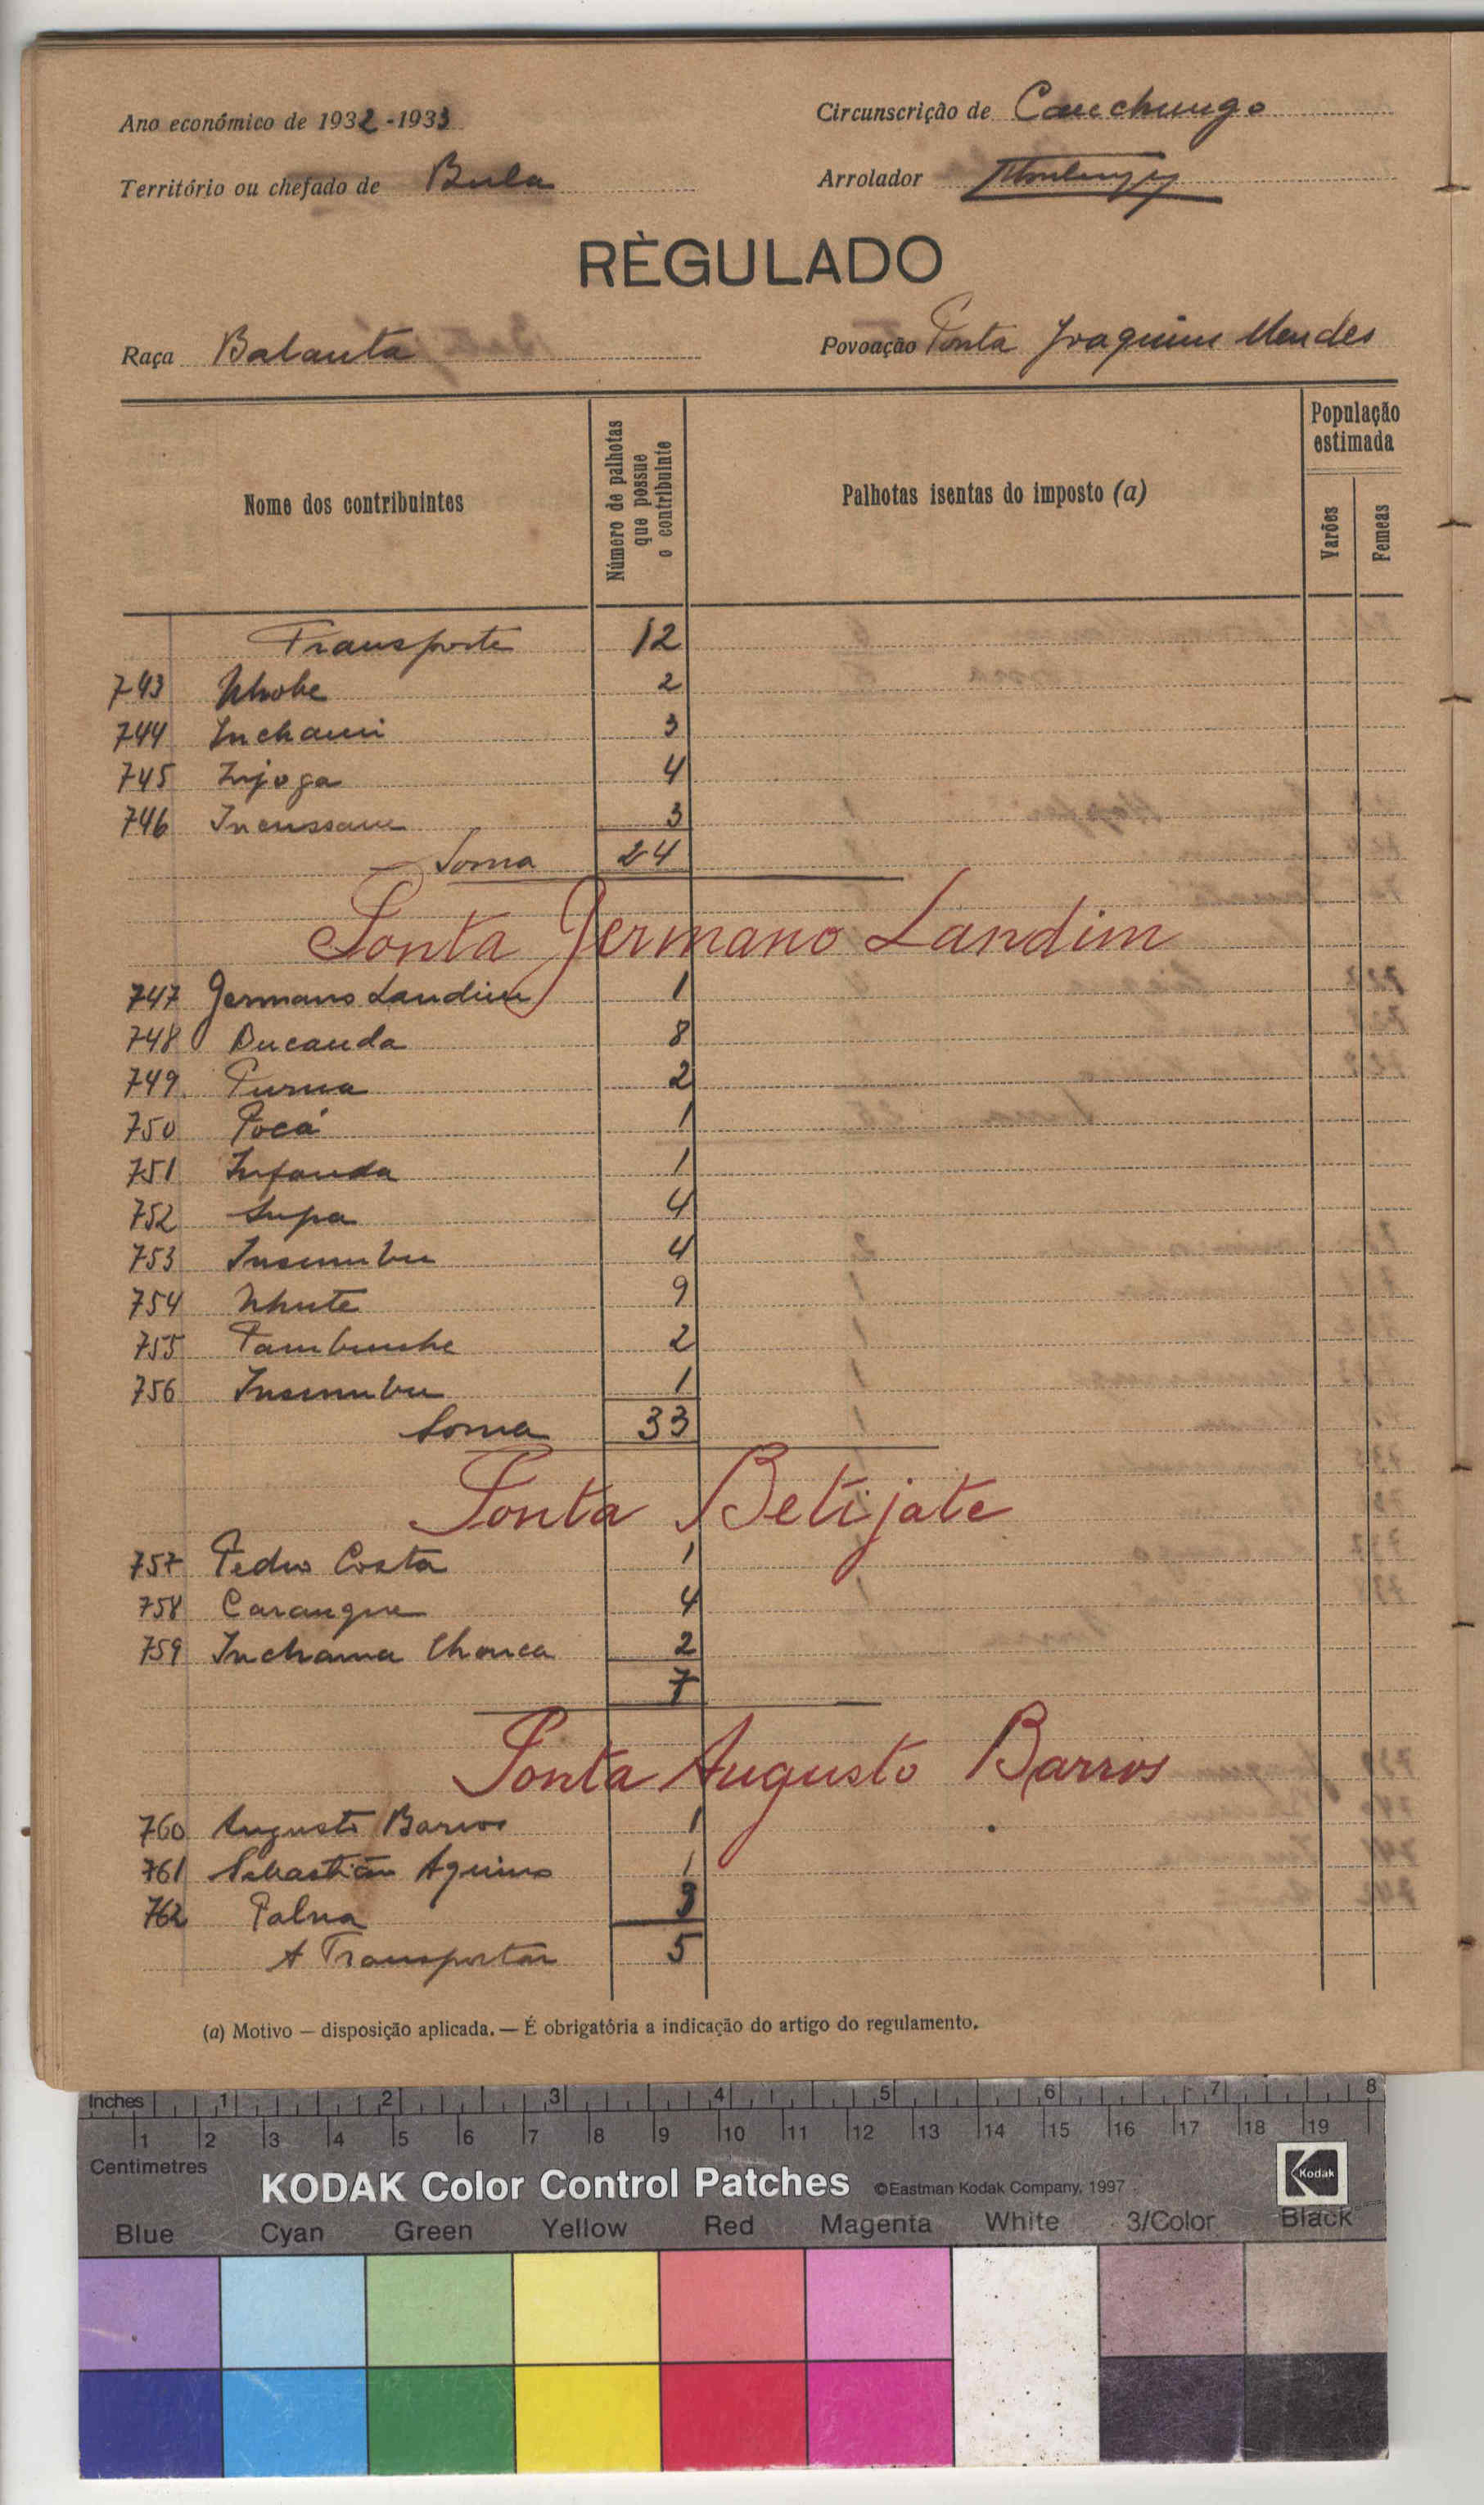 Ano económico de 1932-1933
Circunscrição de Canchungo
Território ou chefado de Bula
Arrolador
RÈGULADO
Raça Balanta
Povoação Ponta Joaquim Mendes
Nome dos contribuintes
Número de palhotas que possue o contribuinte
Palhotas isentas do imposto (a)
População estimada
Varões
Femeas
Transporte 12
743 Nhobe 2
744 Inchami 3
745 Injoga 4
746 Incussane 3
Soma 24
Ponta Germano Landim
747 Germano Landim 1
748 Ducanda 8
749 Purna 2
750 Pocá 1
751 Infanda 1
752 Supa 4
753 Insumbu 4
754 Nhute 9
755 Tambunhe 2
756 Insumbu 1
Soma 33
Ponta Betijate
757 Pedro Costa 1
758 Carangue 4
759 Inchama Chonca 2
7
Ponta Augusto Barros
760 Augusto Barros 1
761 Sebastião Aquino 1
762 Palna 3
A Transportar 5
(a) Motivo — disposição aplicada. — É obrigatória a indicação do artigo do regulamento.
Inches 1 2 3 4 5 6 7 8
1 2 3 4 5 6 7 8 9 10 11 12 13 14 15 16 17 18 19
Centimetres
KODAK Color Control Patches ©Eastman Kodak Company, 1997
Kodak
Blue Cyan Green Yellow Red Magenta White 3/Color Black